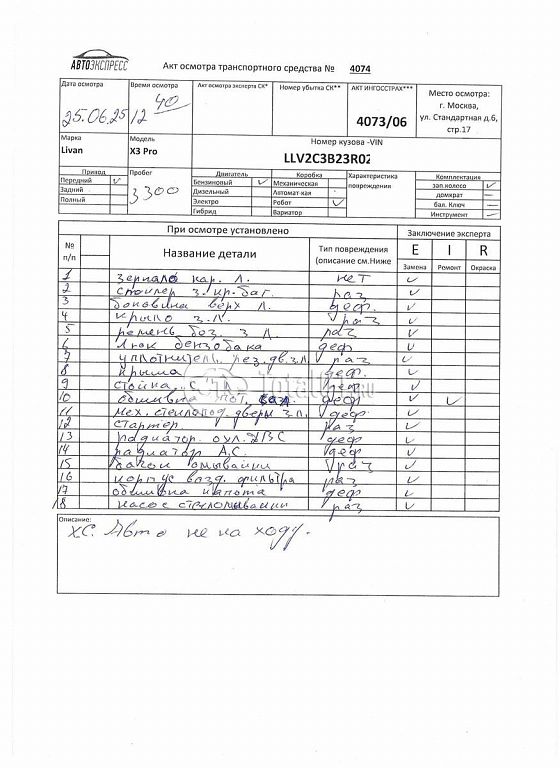 АВТОЭКСПРЕСС
Акт осмотра транспортного средства № 4074
Дата осмотра
25.06.25
Время осмотра
12 40
Акт осмотра эксперта СК*
Номер убытка СК**
АКТ ИНГОССТРАХ***
4073/06
Место осмотра:
г. Москва,
ул. Стандартная д.6,
стр.17
Марка
Livan
Модель
X3 Pro
Номер кузова -VIN
LLV2C3B23R02
Привод
Передний ✓
Задний
Полный
Пробег
3300
Двигатель
Бензиновый ✓
Дизельный
Электро
Гибрид
Коробка
Механическая
Автомат-кая
Робот ✓
Вариатор
Характеристика
повреждения
Комплектация
зап.колесо ✓
домкрат —
бал. Ключ —
Инструмент —
При осмотре установлено
Заключение эксперта
№ п/п
Название детали
Тип повреждения
(описание см.Ниже
E I R
Замена Ремонт Окраска
1 зеркало нар. л. нет ✓
2 спойлер з. кр. баг. раз ✓
3 боковина верх л. деф. ✓
4 крыло з.л. раз ✓
5 ремень без. з л. раз ✓
6 люк бензобака деф ✓
7 уплотнитель рез.дв.з.л. раз ✓
8 крыша деф. ✓
9 стойка с. л деф. ✓
10 обшивка пот. деф ✓ ✓
11 мех. стеклопод. двери з.л. деф. ✓
12 стартер раз ✓
13 радиатор охл. ДВС деф ✓
14 радиатор А.С. деф ✓
15 бачок омывайки раз ✓
16 корпус возд. фильтра раз ✓
17 обшивка капота деф ✓
18 насос стеклоомывайки раз ✓
TotalCar.ru
Описание:
ХС. Авто не на ходу.